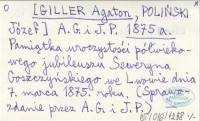 [GILLER Agaton, POLIŃSKI
Józef] A. G i J. P. 1875 a.
Pamiątka uroczystości półwieko-
wego jubileuszu Seweryna
Goszczyńskiego we Lwowie dnia
7. marca 1875. roku. (Sprawo-
zdanie przez A. G i J. P.)